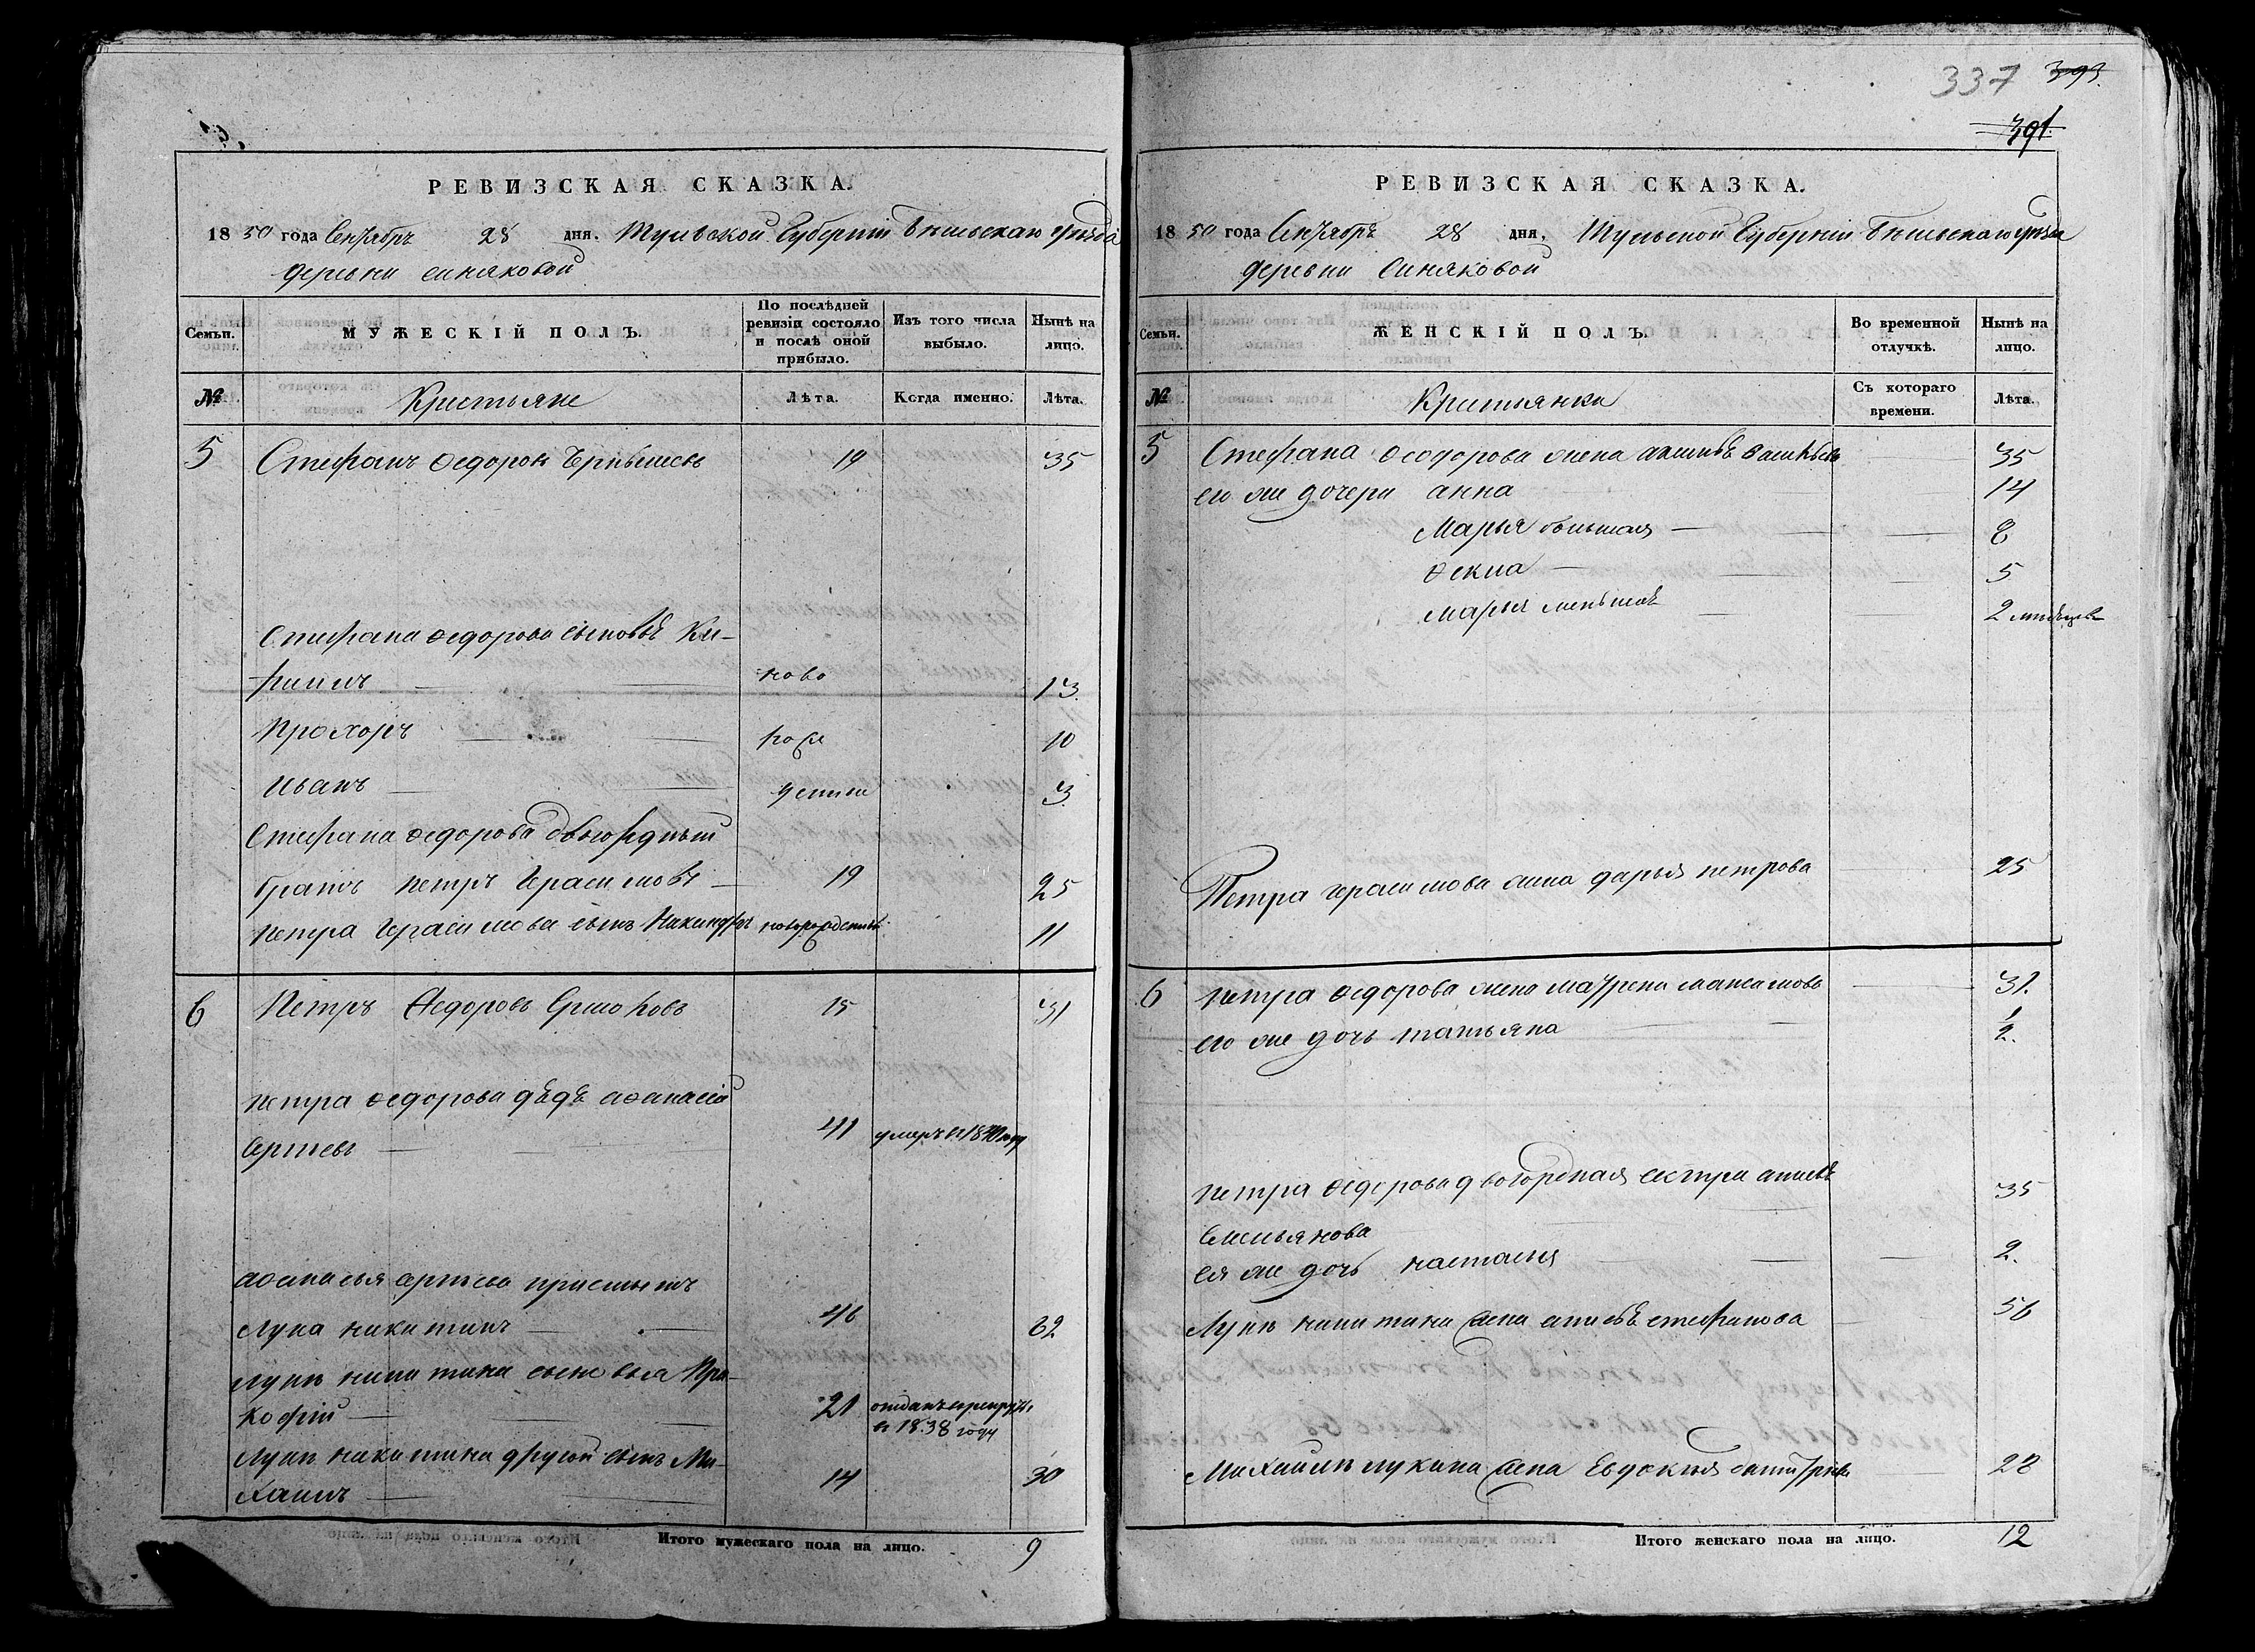 РЕВИЗСКАЯ СКАЗКА.
1850 года Сентября 28 дня. Тульской Губерніи Бѣлевскаго уѣзда
деревни синяковой
Семьи.
МУЖЕСКІЙ ПОЛЪ.
По послѣдней ревизіи состояло и послѣ оной прибыло.
Изъ того числа выбыло.
Нынѣ на лицо.
№
Крестьяне
Лѣта.
Когда именно.
Лѣта.
5 Стефанъ Ѳедоровъ 19 35
Стефана Ѳедорова сыновья Ки-
рилъ ново 13
Прохоръ рож 10
Иванъ дении 3
Стефана Ѳедорова двоюродный
братъ Петръ Герасимовъ 19 25
Петра Герасимова сынъ Никандръ новорожденъ 11
6 Петръ Ѳедоровъ 15 31
Петра Ѳедорова дѣдъ Аѳанасій
Сергѣевъ 41 умеръ въ 1840 году
Аѳанасья пріемышъ
Лука Никитинъ 46 62
Луки Никитина сыновья Про-
кофій 21 отданъ въ рекруты
въ 1838 году
Луки Никитина другой сынъ Ми-
хаилъ 14 30
Итого мужескаго пола на лицо. 9
337 393.
391.
РЕВИЗСКАЯ СКАЗКА.
1850 года Сентября 28 дня, Тульской Губерніи Бѣлевскаго уѣзда
деревни Синяковой
Семьи.
ЖЕНСКІЙ ПОЛЪ.
Во временной отлучкѣ.
Нынѣ на лицо.
№
Крестьянки
Съ котораго времени.
Лѣта.
5 Стефана Ѳедорова жена 35
его же дочери анна 14
Марья большая 8
Ѳекла 5
марья меньшая 2 мѣсяцевъ
Петра Герасимова жена дарья петрова 25
6 Петра Ѳедорова жена матрена максимова 31.
его же дочь татьяна 1/2.
Петра Ѳедорова двоюродная сестра анисья 35
Емельянова
ея же дочь настасья 2.
Луки никитина жена анисья стефанова 56
Михаила лукина жена Евдокья 28
Итого женскаго пола на лицо. 12